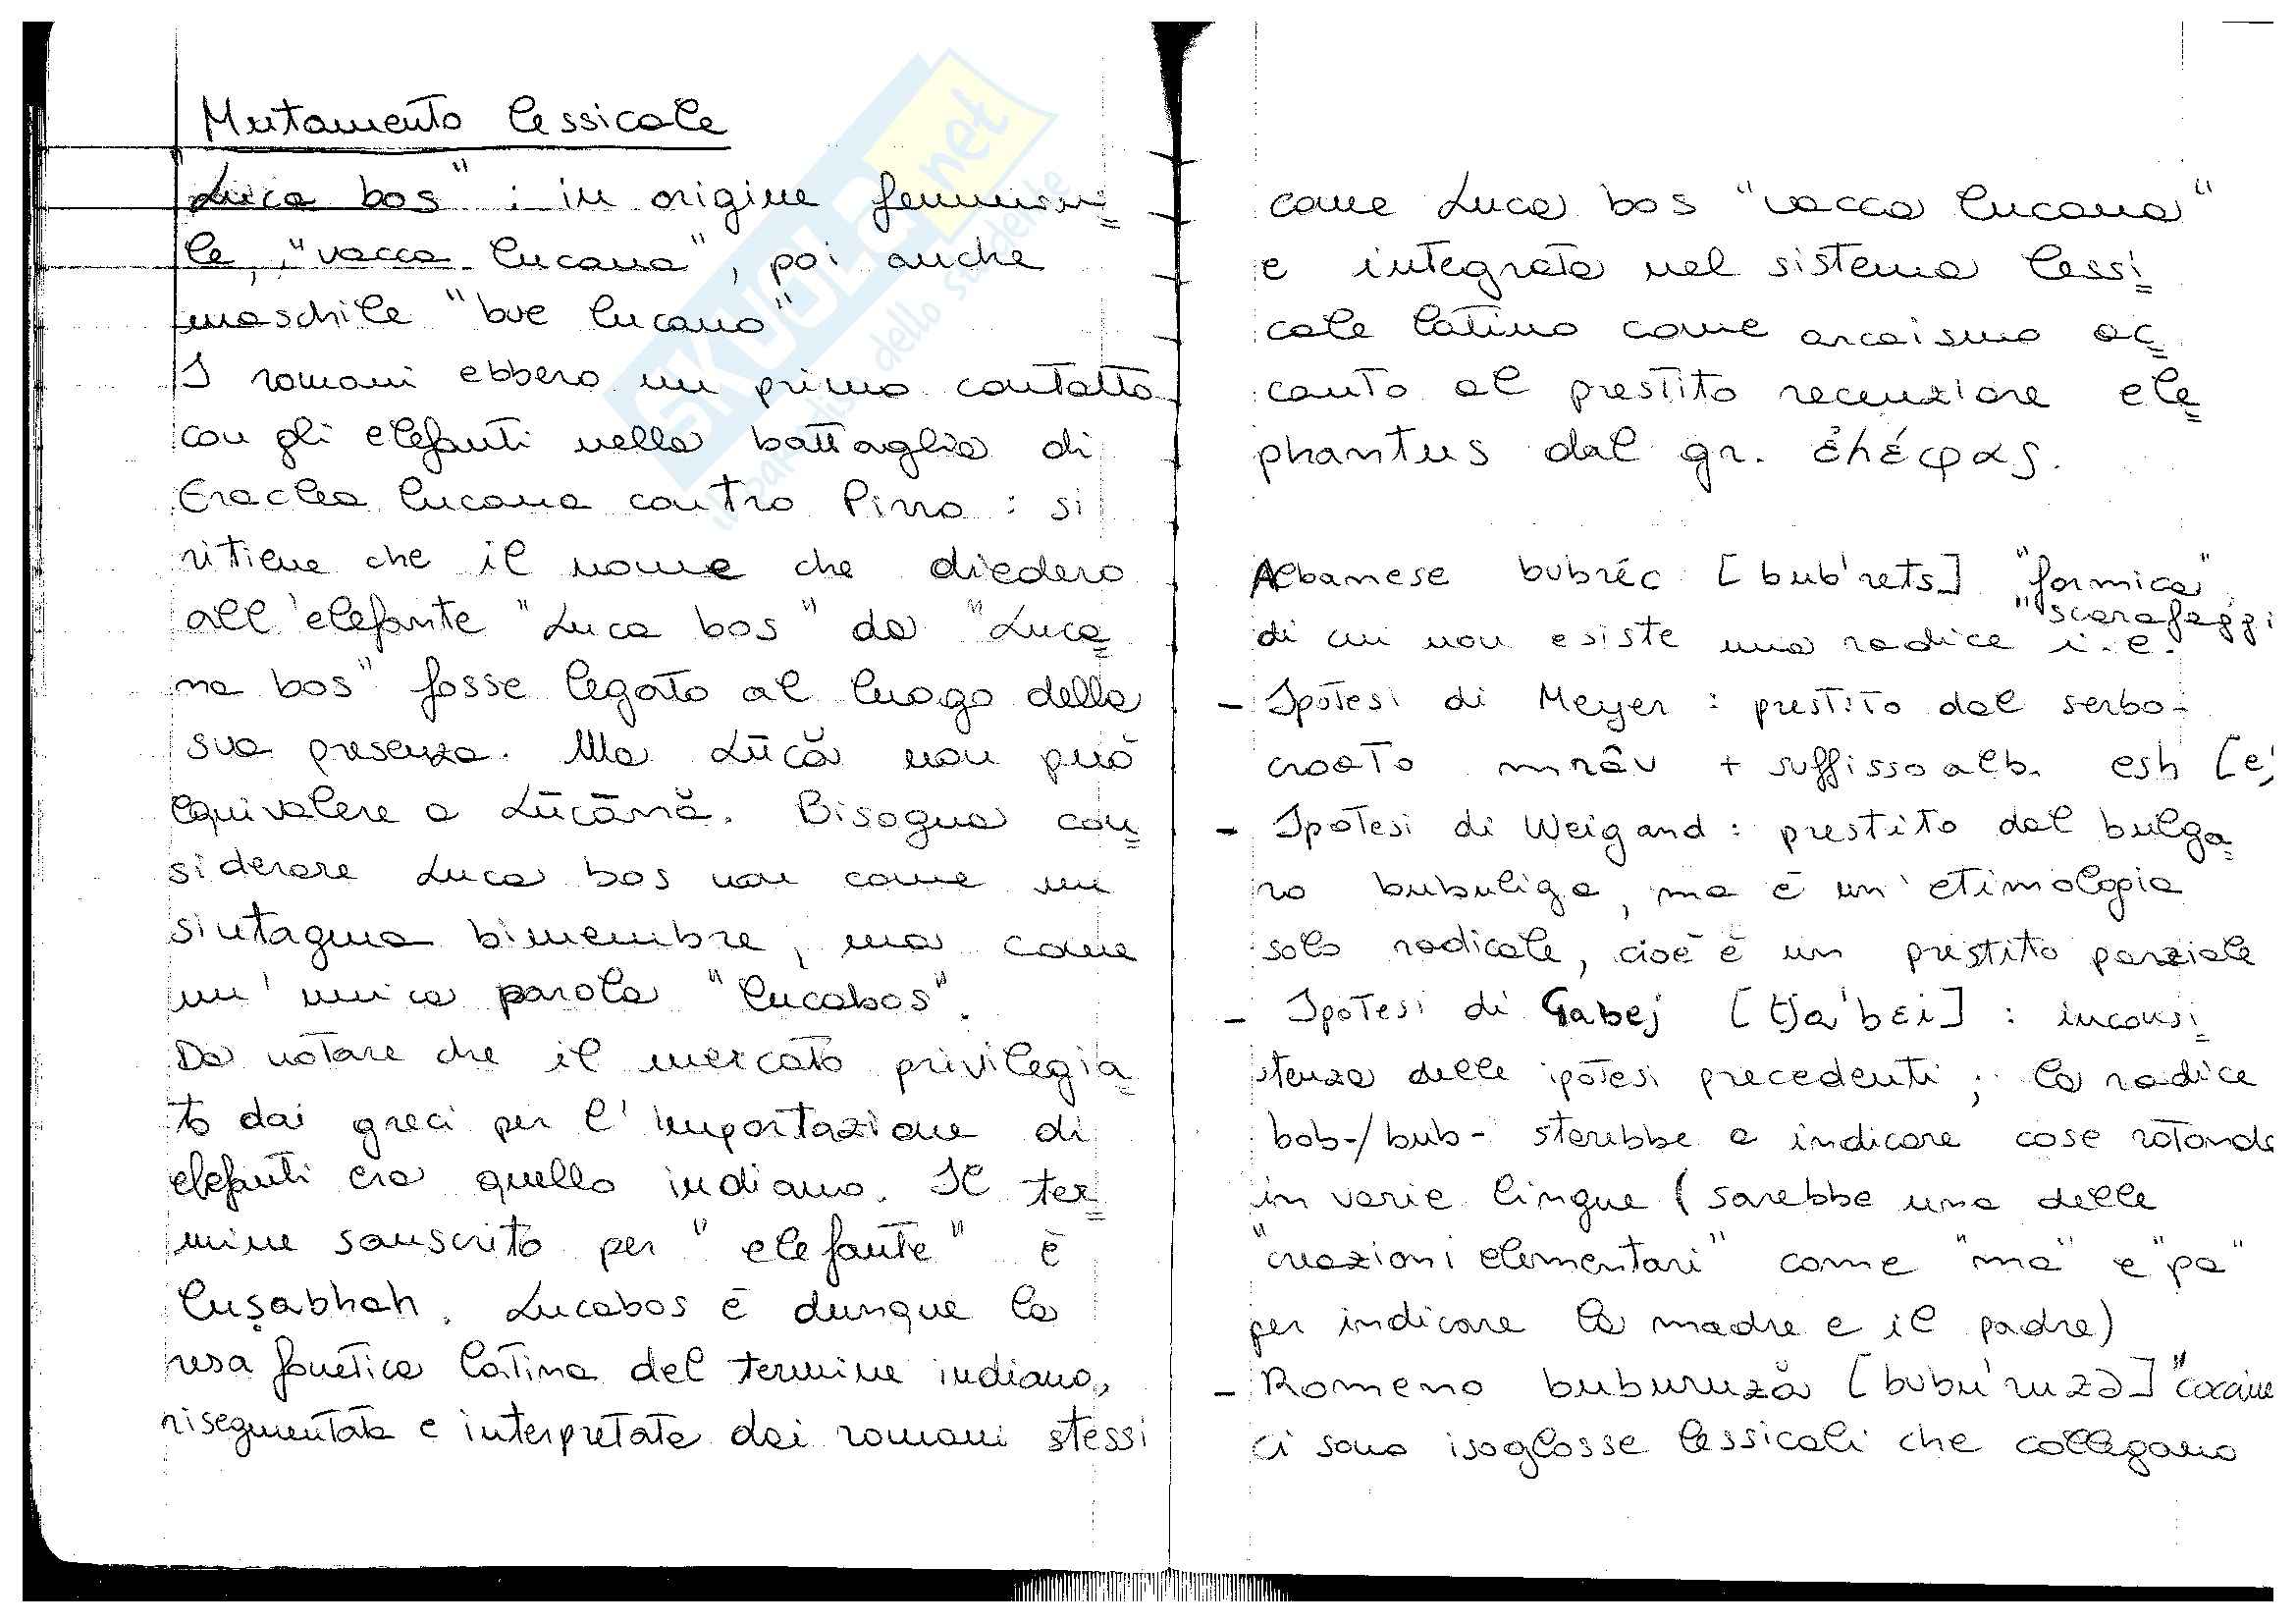 Mutamento lessicale
Luca bos" : in origine femmini=
le, "vacca lucana", poi anche
maschile "bue lucano"
I romani ebbero un primo contatto
con gli elefanti nella battaglia di
Eraclea lucana contro Pirro : si
ritiene che il nome che diedero
all'elefante "Luca bos" da "Luca=
na bos" fosse legato al luogo della
sua presenza. Ma Lūcă non può
equivalere a Lūcānă. Bisogna con=
siderare Luca bos non come un
sintagma bimembre, ma come
un'unica parola "lucabos".
Da notare che il mercato privilegia=
to dai greci per l'importazione di
elefanti era quello indiano. Il ter=
mine sanscrito per "elefante" è
luṣabhah. Lucabos è dunque la
resa fonetica latina del termine indiano,
risegmentata e interpretata dai romani stessi
come Luca bos "vacca lucana"
e integrata nel sistema lessi=
cale latino come arcaismo ac=
canto al prestito recenziore ele=
phantus dal gr. ἐλέφας.
Albanese bubréc [bub'rets] "formica",
"scarafaggi
di cui non esiste una radice i.e.
- Ipotesi di Meyer : prestito dal serbo-
croato mrâv + suffisso alb. esh [e
- Ipotesi di Weigand : prestito dal bulga=
ro bubuliga, ma è un'etimologia
solo radicale, cioè è un prestito parziale
- Ipotesi di Çabej [tʃa'bɛi] : inconsi=
stenza delle ipotesi precedenti; la radice
bob-/bub- starebbe a indicare cose rotonde
in varie lingue (sarebbe una delle
"creazioni elementari" come "ma" e "pa"
per indicare la madre e il padre)
- Romeno buburuză [bubu'ruzə] "coccine
ci sono isoglosse lessicali che collegano
SKUOLA.net
il paradiso dello studente